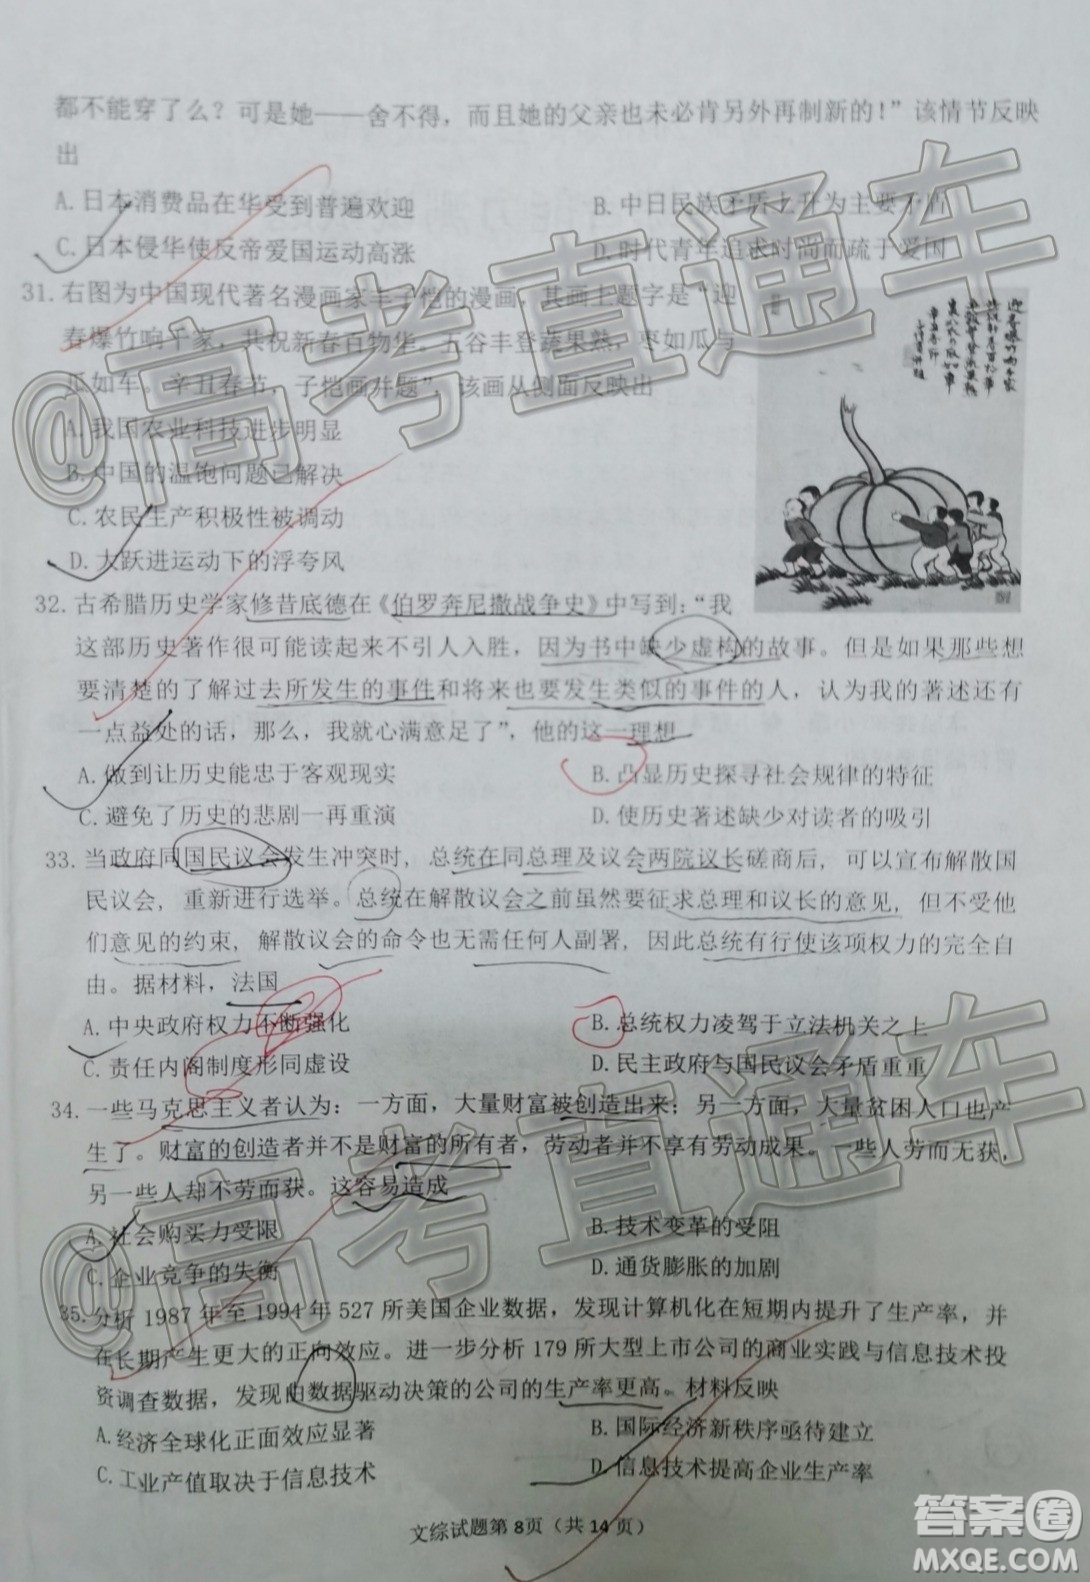 都不能穿了么？可是她——舍不得，而且她的父亲也未必肯另外再制新的！”该情节反映
出
A. 日本消费品在华受到普遍欢迎
B. 中日民族矛盾上升为主要矛盾
C. 日本侵华使反帝爱国运动高涨
D. 时代青年追求时尚而疏于爱国
31. 右图为中国现代著名漫画家丰子恺的漫画，其画上题字是“迎
春爆竹响千家，共祝新春百物华。五谷丰登蔬果熟，枣如瓜与
瓜如车。辛丑春节，子恺画并题”，该画从侧面反映出
A. 我国农业科技进步明显
B. 中国的温饱问题已解决
C. 农民生产积极性被调动
D. 大跃进运动下的浮夸风
32. 古希腊历史学家修昔底德在《伯罗奔尼撒战争史》中写到：“我
这部历史著作很可能读起来不引人入胜，因为书中缺少虚构的故事。但是如果那些想
要清楚的了解过去所发生的事件和将来也要发生类似的事件的人，认为我的著述还有
一点益处的话，那么，我就心满意足了”，他的这一理想
A. 做到让历史能忠于客观现实
B. 凸显历史探寻社会规律的特征
C. 避免了历史的悲剧一再重演
D. 使历史著述缺少对读者的吸引
33. 当政府同国民议会发生冲突时，总统在同总理及议会两院议长磋商后，可以宣布解散国
民议会，重新进行选举。总统在解散议会之前虽然要征求总理和议长的意见，但不受他
们意见的约束，解散议会的命令也无需任何人副署，因此总统有行使该项权力的完全自
由。据材料，法国
A. 中央政府权力不断强化
B. 总统权力凌驾于立法机关之上
C. 责任内阁制度形同虚设
D. 民主政府与国民议会矛盾重重
34. 一些马克思主义者认为：一方面，大量财富被创造出来；另一方面，大量贫困人口也产
生了。财富的创造者并不是财富的所有者，劳动者并不享有劳动成果。一些人劳而无获，
另一些人却不劳而获。这容易造成
A. 社会购买力受限
B. 技术变革的受阻
C. 企业竞争的失衡
D. 通货膨胀的加剧
35. 分析 1987 年至 1994 年 527 所美国企业数据，发现计算机化在短期内提升了生产率，并
在长期产生更大的正向效应。进一步分析 179 所大型上市公司的商业实践与信息技术投
资调查数据，发现由数据驱动决策的公司的生产率更高。材料反映
A. 经济全球化正面效应显著
B. 国际经济新秩序亟待建立
C. 工业产值取决于信息技术
D. 信息技术提高企业生产率
文综试题第 8页（共 14 页）
@高考直通车
@高考直通车
答案圈
MXQE.COM